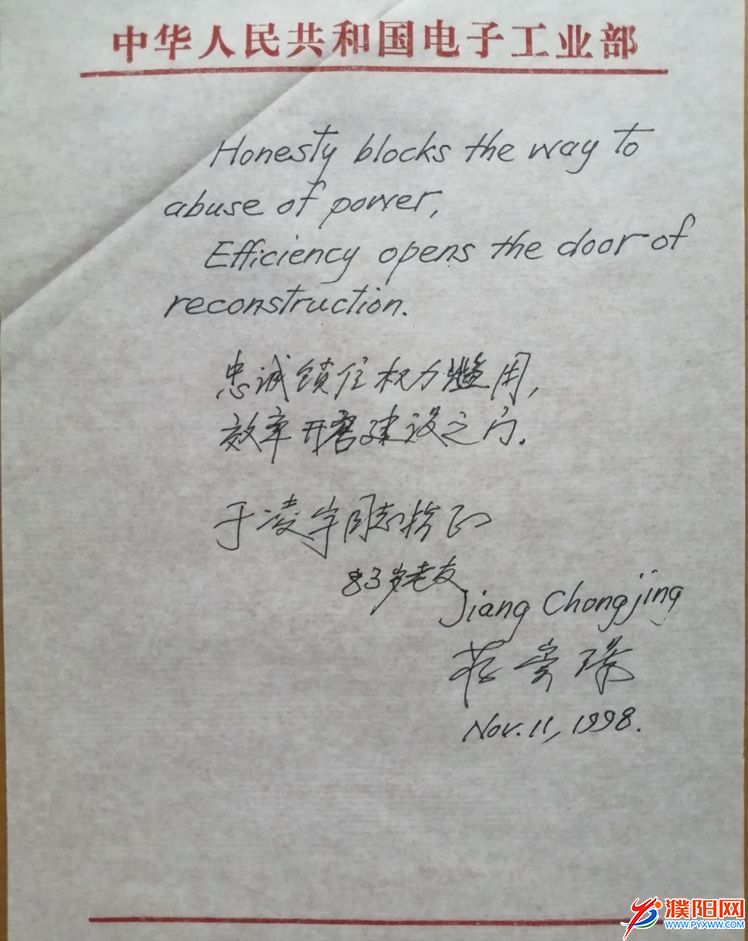 中华人民共和国电子工业部
Honesty blocks the way to
abuse of power,
Efficiency opens the door of
reconstruction.
忠诚锁住权力滥用,
效率开启建设之门.
于凌宇同志指正
83岁老友
Jiang Chongjing
Nov. 11, 1998.
濮阳网
WWW.PYXWW.COM